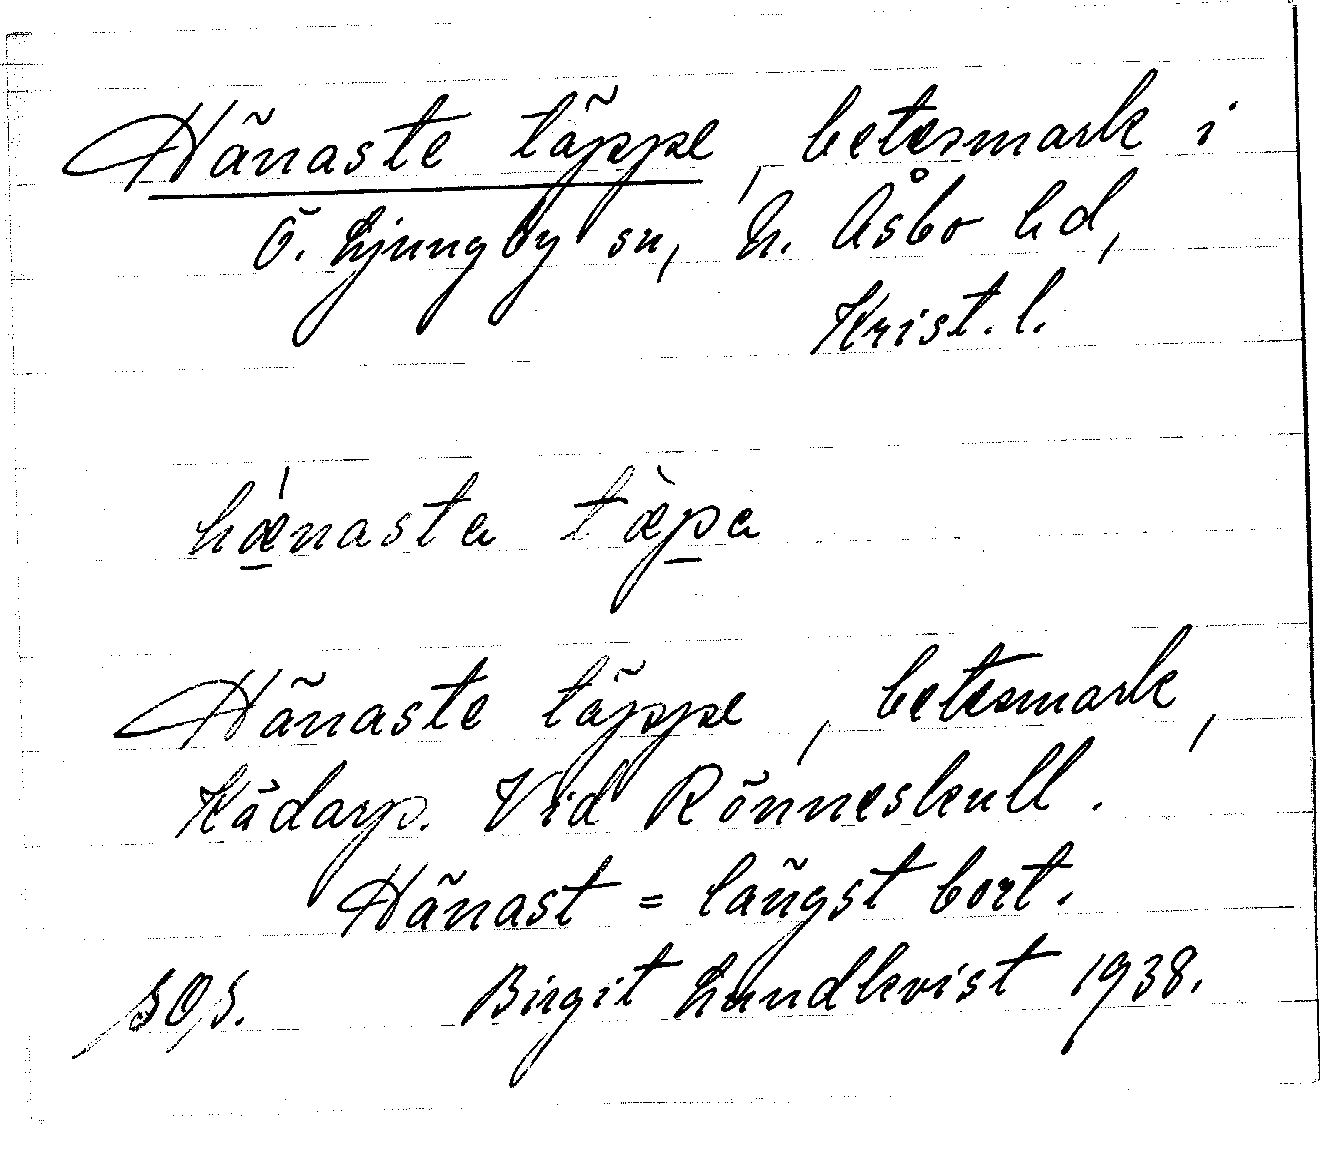 Hänaste täppe, betesmark i
Ö. Ljungby sn, N. Åsbo hd,
Krist. l.
hænasta tæpa
Hänaste täppe, betesmark,
Kådarp. Vid Rönneskull.
Hänast = längst bort.
SOS. Birgit Lundkvist 1938.